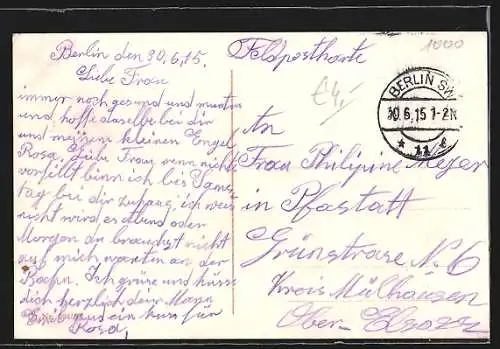 Berlin den 30.6.15.
Liebe Frau
immer noch gesund und munter
und hoffe daselbe bei dir
und meinem kleinen Engel
Rosa, Liebe Frau wenn nichts
vorfällt binn ich bis Sams
tag bei dir zuhaus, ich weis
nicht wird es Abend oder
Morgen du brauchst nicht
auf mich warten an der
Baehn. Ich grüse und küsse
dich herzlich dein Mann
und ein kus für
Rosa,
Feldpostkarte
1000
£4,-
BERLIN SW
30.6.15 1-2N
* 11
An
Frau Philipine Meyer
in Pfastatt
Grünstrase No 6
Kreis Mülhausen
Ober-Elsass